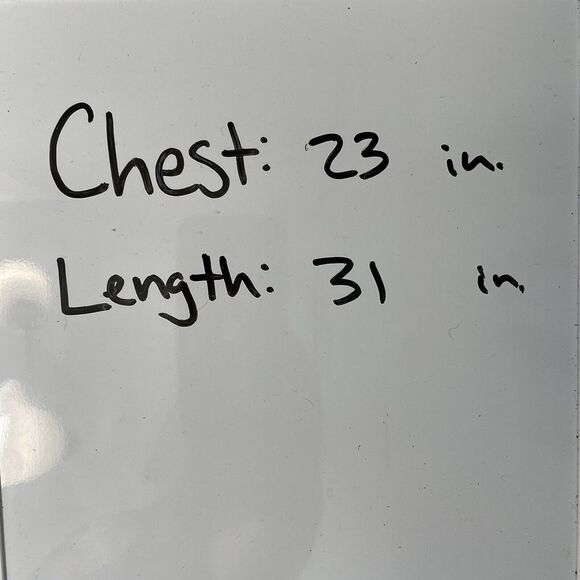 Chest: 23 in.
Length: 31 in.